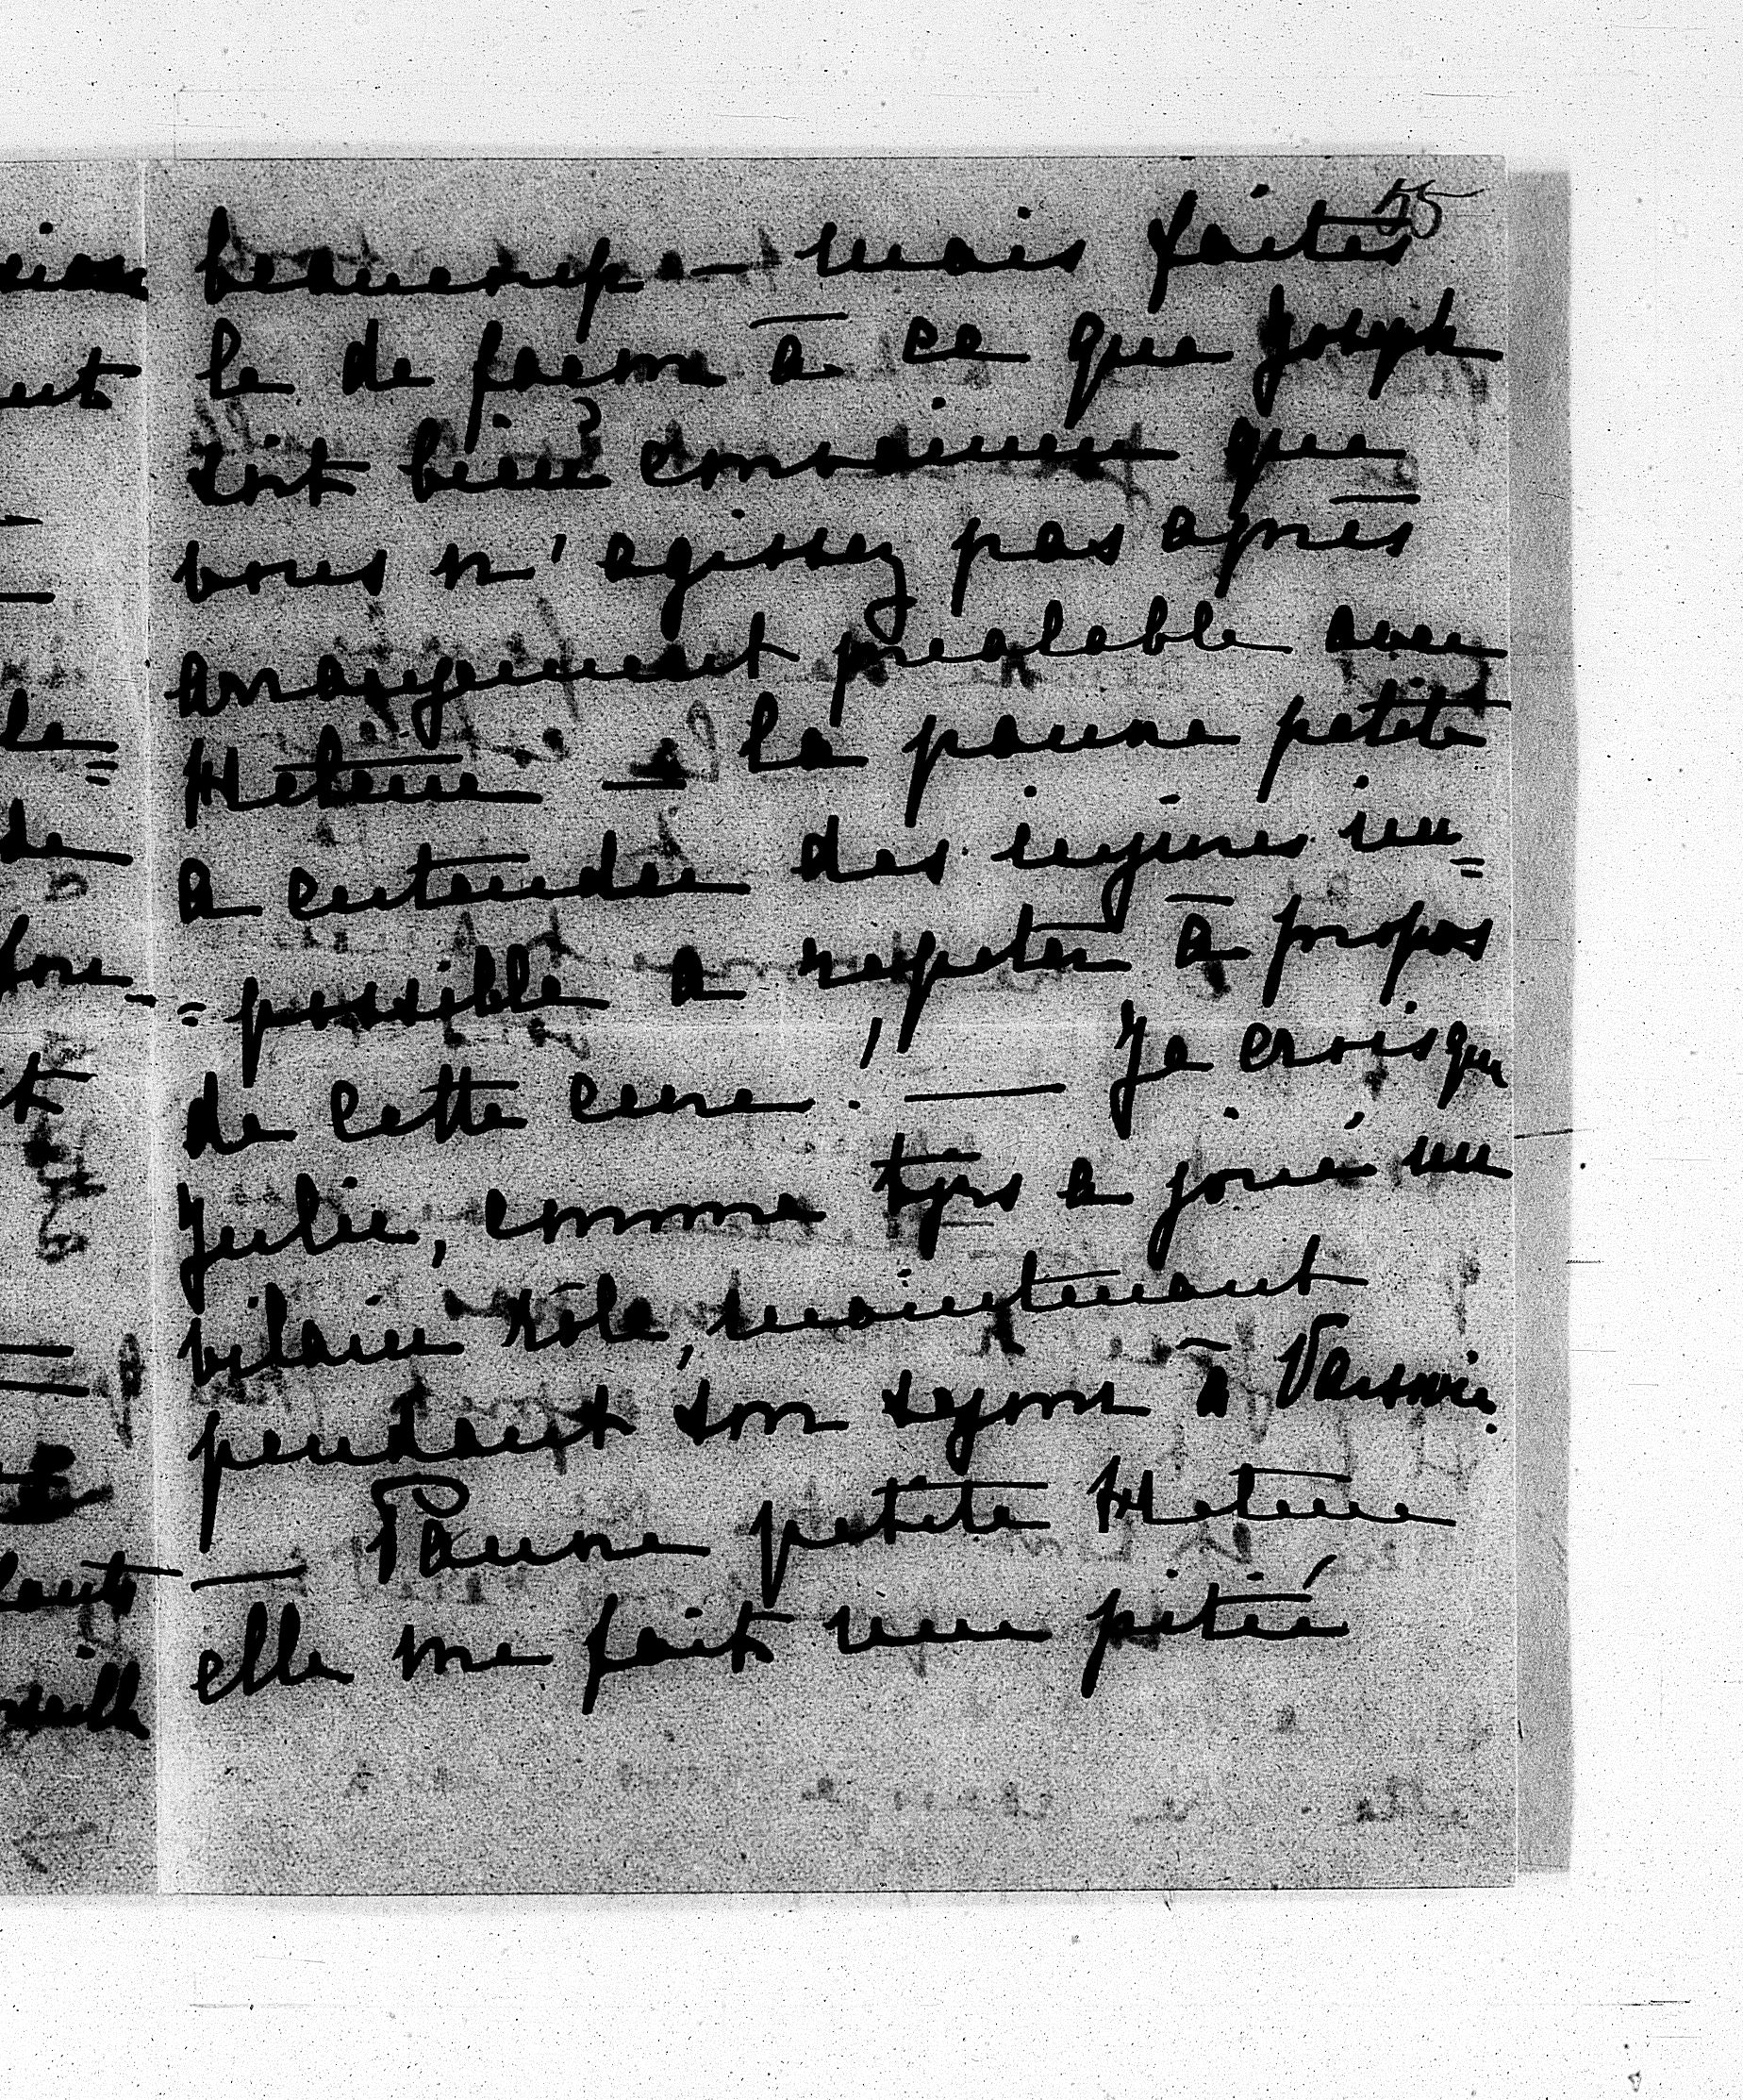 55
beaucoup — mais faites
le de façon à ce que Joseph
soit bien convaincu que
vous n'agissez pas après
arrangement prealable avec
Hetene — la pauvre petite
a entendu des injures im=
=possible a repeter à propos
de cette cure. — Je crois que
Julie, comme tjrs a joué un
vilain rôle, maintenant
pendant son sejour à Varsovie.
— Pauvre petite Hetene
elle me fait une pitié